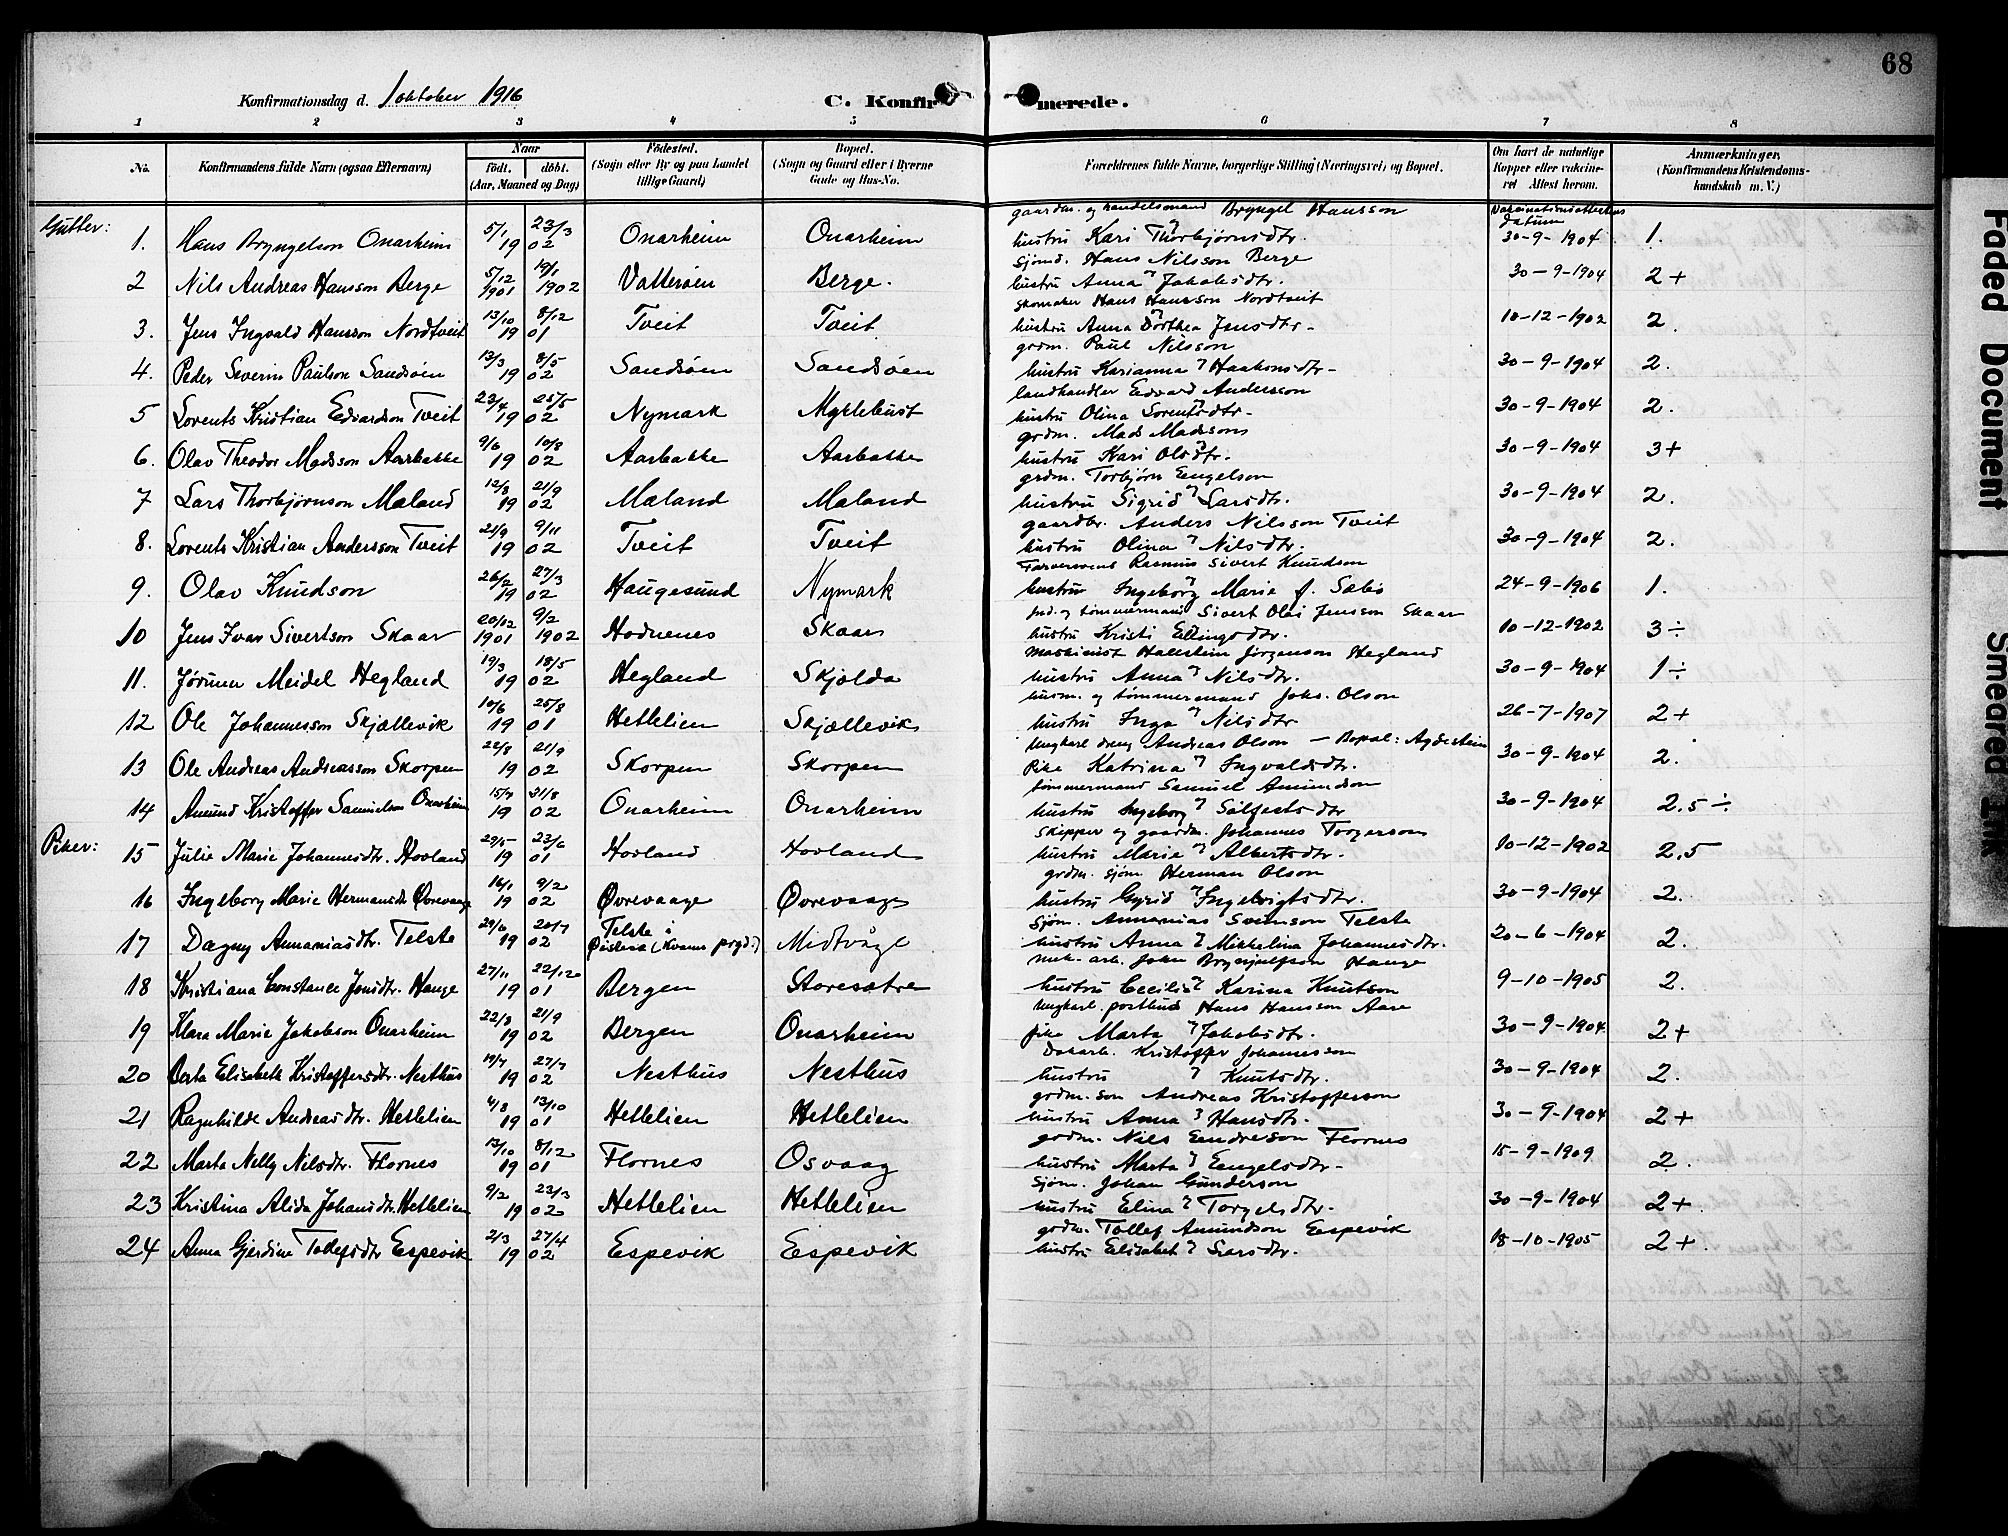 68
Konfirmationsdag d. 1 oktober 1916 C. Konfirmerede.
1 2 3 4 5 6 7 8
No. Konfirmandens fulde Navn (ogsaa Efternavn) Naar födt. döbt. (Aar, Maaned og Dag) Födested. (Sogn eller By og paa Landet tillige Gaard) Bopæl. (Sogn og Gaard eller i Byerne Gade og Hus-No. Foreldrenes fulde Navne, borgerlige Stilling (Næringsvei) og Bopæl. Om havt de naturlige Kopper eller vakcineret Attest herom. Anmærkninger. (Konfirmandens Kristendomskundskab m. V.)
Gutter:
gaardm. og handelsmand Bryngel Hansson Vaccinationsattestens datum
1. Hans Bryngelson Onarheim 5/1 1902 23/3 Onarheim Onarheim hustru Kari Thorbjørnsdtr. 30-9-1904 1.
sjömd. Hans Nilsson Berge
2 Nils Andreas Hansson Berge 5/12 1901 19/1 1902 Vattersöen Berge. hustru Anna Jakobsdtr. 30-9-1904 2+
skomaker Hans Hansson Nordtveit
3. Jens Ingvald Hansson Nordtveit 13/10 8/12 1901 Tveit Tveit hustru Anna Dorthea Jensdtr. 10-12-1902 2.
grdm. Paul Nilsson
4. Peder Severin Paulson Sandsöen 13/3 8/5 1902 Sandsöen Sandsöen hustru Karianna Haakonsdtr. 30-9-1904 2.
landhandler Edvard Andersson
5 Lorents Kristian Edvardson Tveit 23/4 25/5 1902 Nymark Myklebust hustru Olina Lorentsdtr. 30-9-1904 2.
grdm. Mads Madssons
6. Olav Theodor Madsson Aarbakke 9/6 10/8 1902 Aarbakke Aarbakke hustru Kari Olsdtr. 30-9-1904 3+
grdm. Torbjørn Engelson
7 Lars Thorbjørnson Mæland 12/8 21/9 1902 Mæland Mæland hustru Sigrid Larsdtr. 30-9-1904 2.
gaardbr. Anders Nilsson Tveit
8. Lorents Kristian Andersson Tveit 21/9 9/11 1902 Tveit Tveit hustru Olina Nilsdtr. 30-9-1904 2.
Rasmus Sivert Knudson
9. Olav Knudson 26/2 27/3 1902 Haugesund Nymark hustru Ingeborg Marie f. Sæbö 24-9-1906 1.
ind. og tömmermand Sivert Olai Jensson Skaar
10 Jens Ivar Sivertson Skaar 20/12 1901 9/2 1902 Hodnenes Skaar hustru Kristi Ellingsdtr. 10-12-1902 3÷
maskinist Hallstein Jörgenson Hegland
11. Jörmen Meidel Hegland 19/3 18/5 1902 Hegland Skjelda hustru Anna Nilsdtr. 30-9-1904 1÷
husm. og tömmermand Johs. Olson
12 Ole Johannesson Skjællevik 10/6 25/8 1901 Hettelien Skjællevik hustru Inga Nilsdtr 26-7-1907 2+
Ungkarl dreng Andreas Olson — Bopæl: Agdestein
13 Ole Andreas Andreasson Skorpen 22/8 21/9 1902 Skorpen Skorpen Pike Katrina Ingvaldsdtr. 30-9-1904 2.
tömmermand Samuel Amundson
14 Amund Kristoffer Samuelson Onarheim 15/7 31/8 1902 Onarheim Onarheim hustru Ingeborg Salfestsdtr 30-9-1904 2.5÷
Piker:
skipper og gaardm. Johannes Torgerson
15 Julie Marie Johannesdtr. Hovland 29/5 23/6 1901 Hovland Hovland hustru Marie Albertsdtr. 10-12-1902 2.5
grdm. sjöm Herman Olson
16 Ingeborg Marie Hermansdtr Øvrevaage 16/1 9/2 1902 Øvrevaage Øvrevaage hustru Gyrid Ingebrigtsdtr. 30-9-1904 2.
sjöm. Annanias Svensson Telste
17 Dagny Annaniasdtr. Telste 29/6 20/7 1902 Telste i Östese (Kvams prgd.) Midtvåge hustru Anna Mikkelina Johannesdtr. 20-6-1904 2.
mek. arb. John Brynjulfson Hauge
18 Kristiana Constance Jonsdtr. Hauge 27/11 22/12 1901 Bergen Storesætre hustru Cecilie Karina Knutson 9-10-1905 2.
Ungkarl. postbud Hans Hansson Aase
19 Klara Marie Jakobson Onarheim 22/8 21/9 1902 Bergen Onarheim pike Marta Jakobsdtr. 30-9-1904 2+
Dakarb. Kristoffer Johannesson
20 Berta Elisabeth Kristoffersdtr. Nesthus 10/7 27/7 1902 Nesthus Nesthus hustru Knutsdtr. 30-9-1904 2.
grdm. son Andreas Kristofferson
21 Ragnhilde Andreasdtr. Hettelien 4/8 13/10 1901 Hettelien Hettelien hustru Anna Hansdtr. 30-9-1904 2+
grdm. Nils Endreson Flornes
22 Marta Nelly Nilsdtr. Flornes 13/10 8/12 1901 Flornes Osvaag hustru Marta Engelsdtr. 15-9-1909 2.
sjöm. Johan Gunderson
23 Kristina Alida Johansdtr. Hettelien 9/2 23/3 1902 Hettelien Hettelien hustru Elina Torgelsdtr. 30-9-1904 2+
grdm. Tollef Amundson Espevik
24 Anna Gjerdine Tollefsdtr Espevik 2/3 27/4 1902 Espevik Espevik hustru Elisabet Larsdtr. 18-10-1905 2+.
Faded Document
Smeared Ink